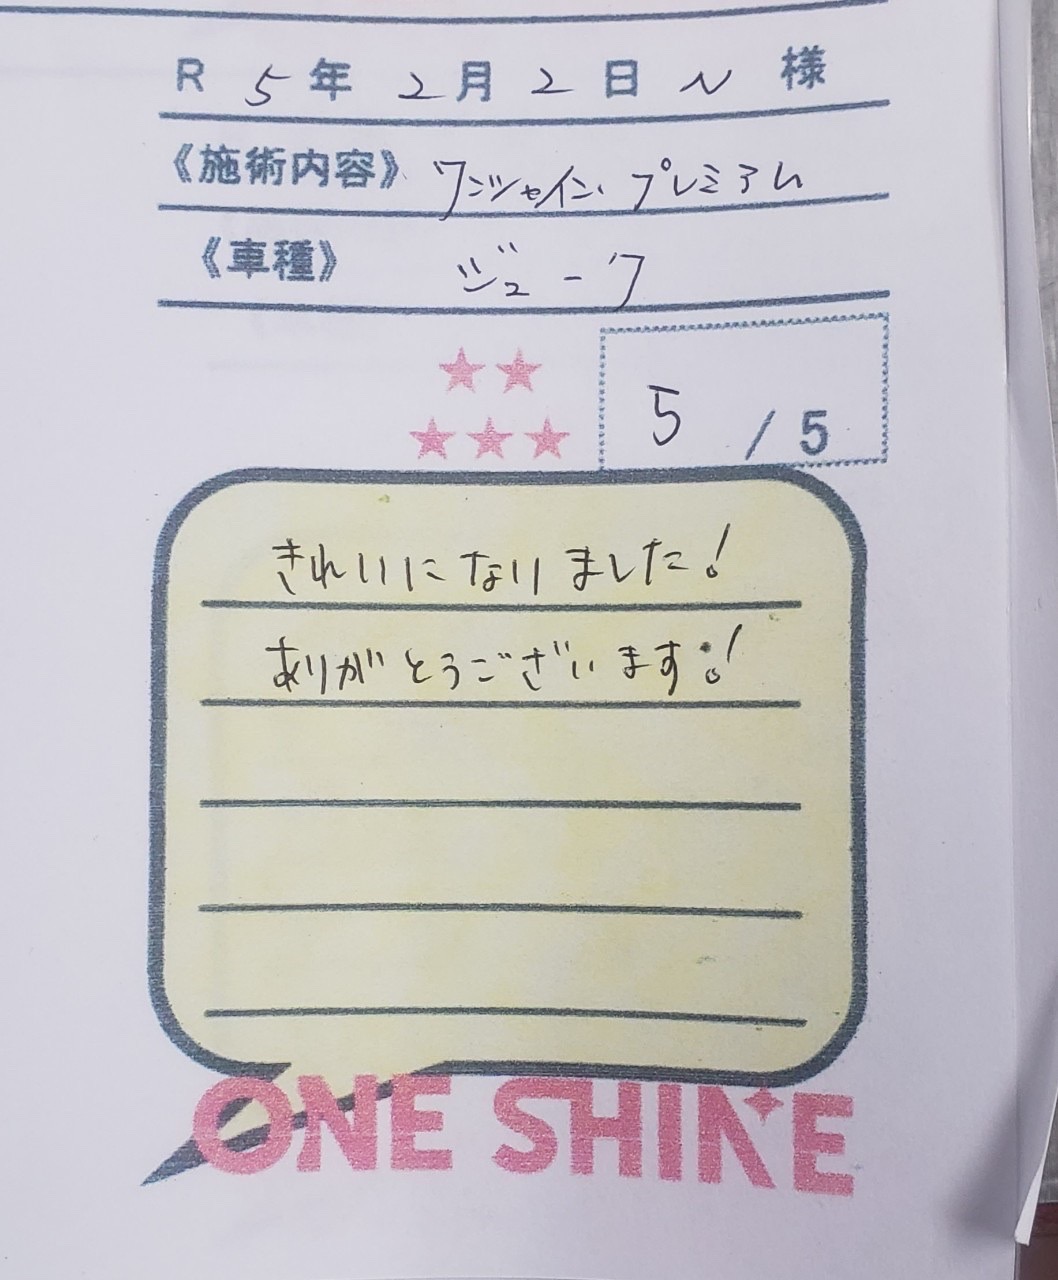 R 5年 2月 2日 N 様
《施術内容》 ワンシャイン・プレミアム
《車種》 ジューク
5 / 5
きれいになりました!
ありがとうございます!
ONE SHINE